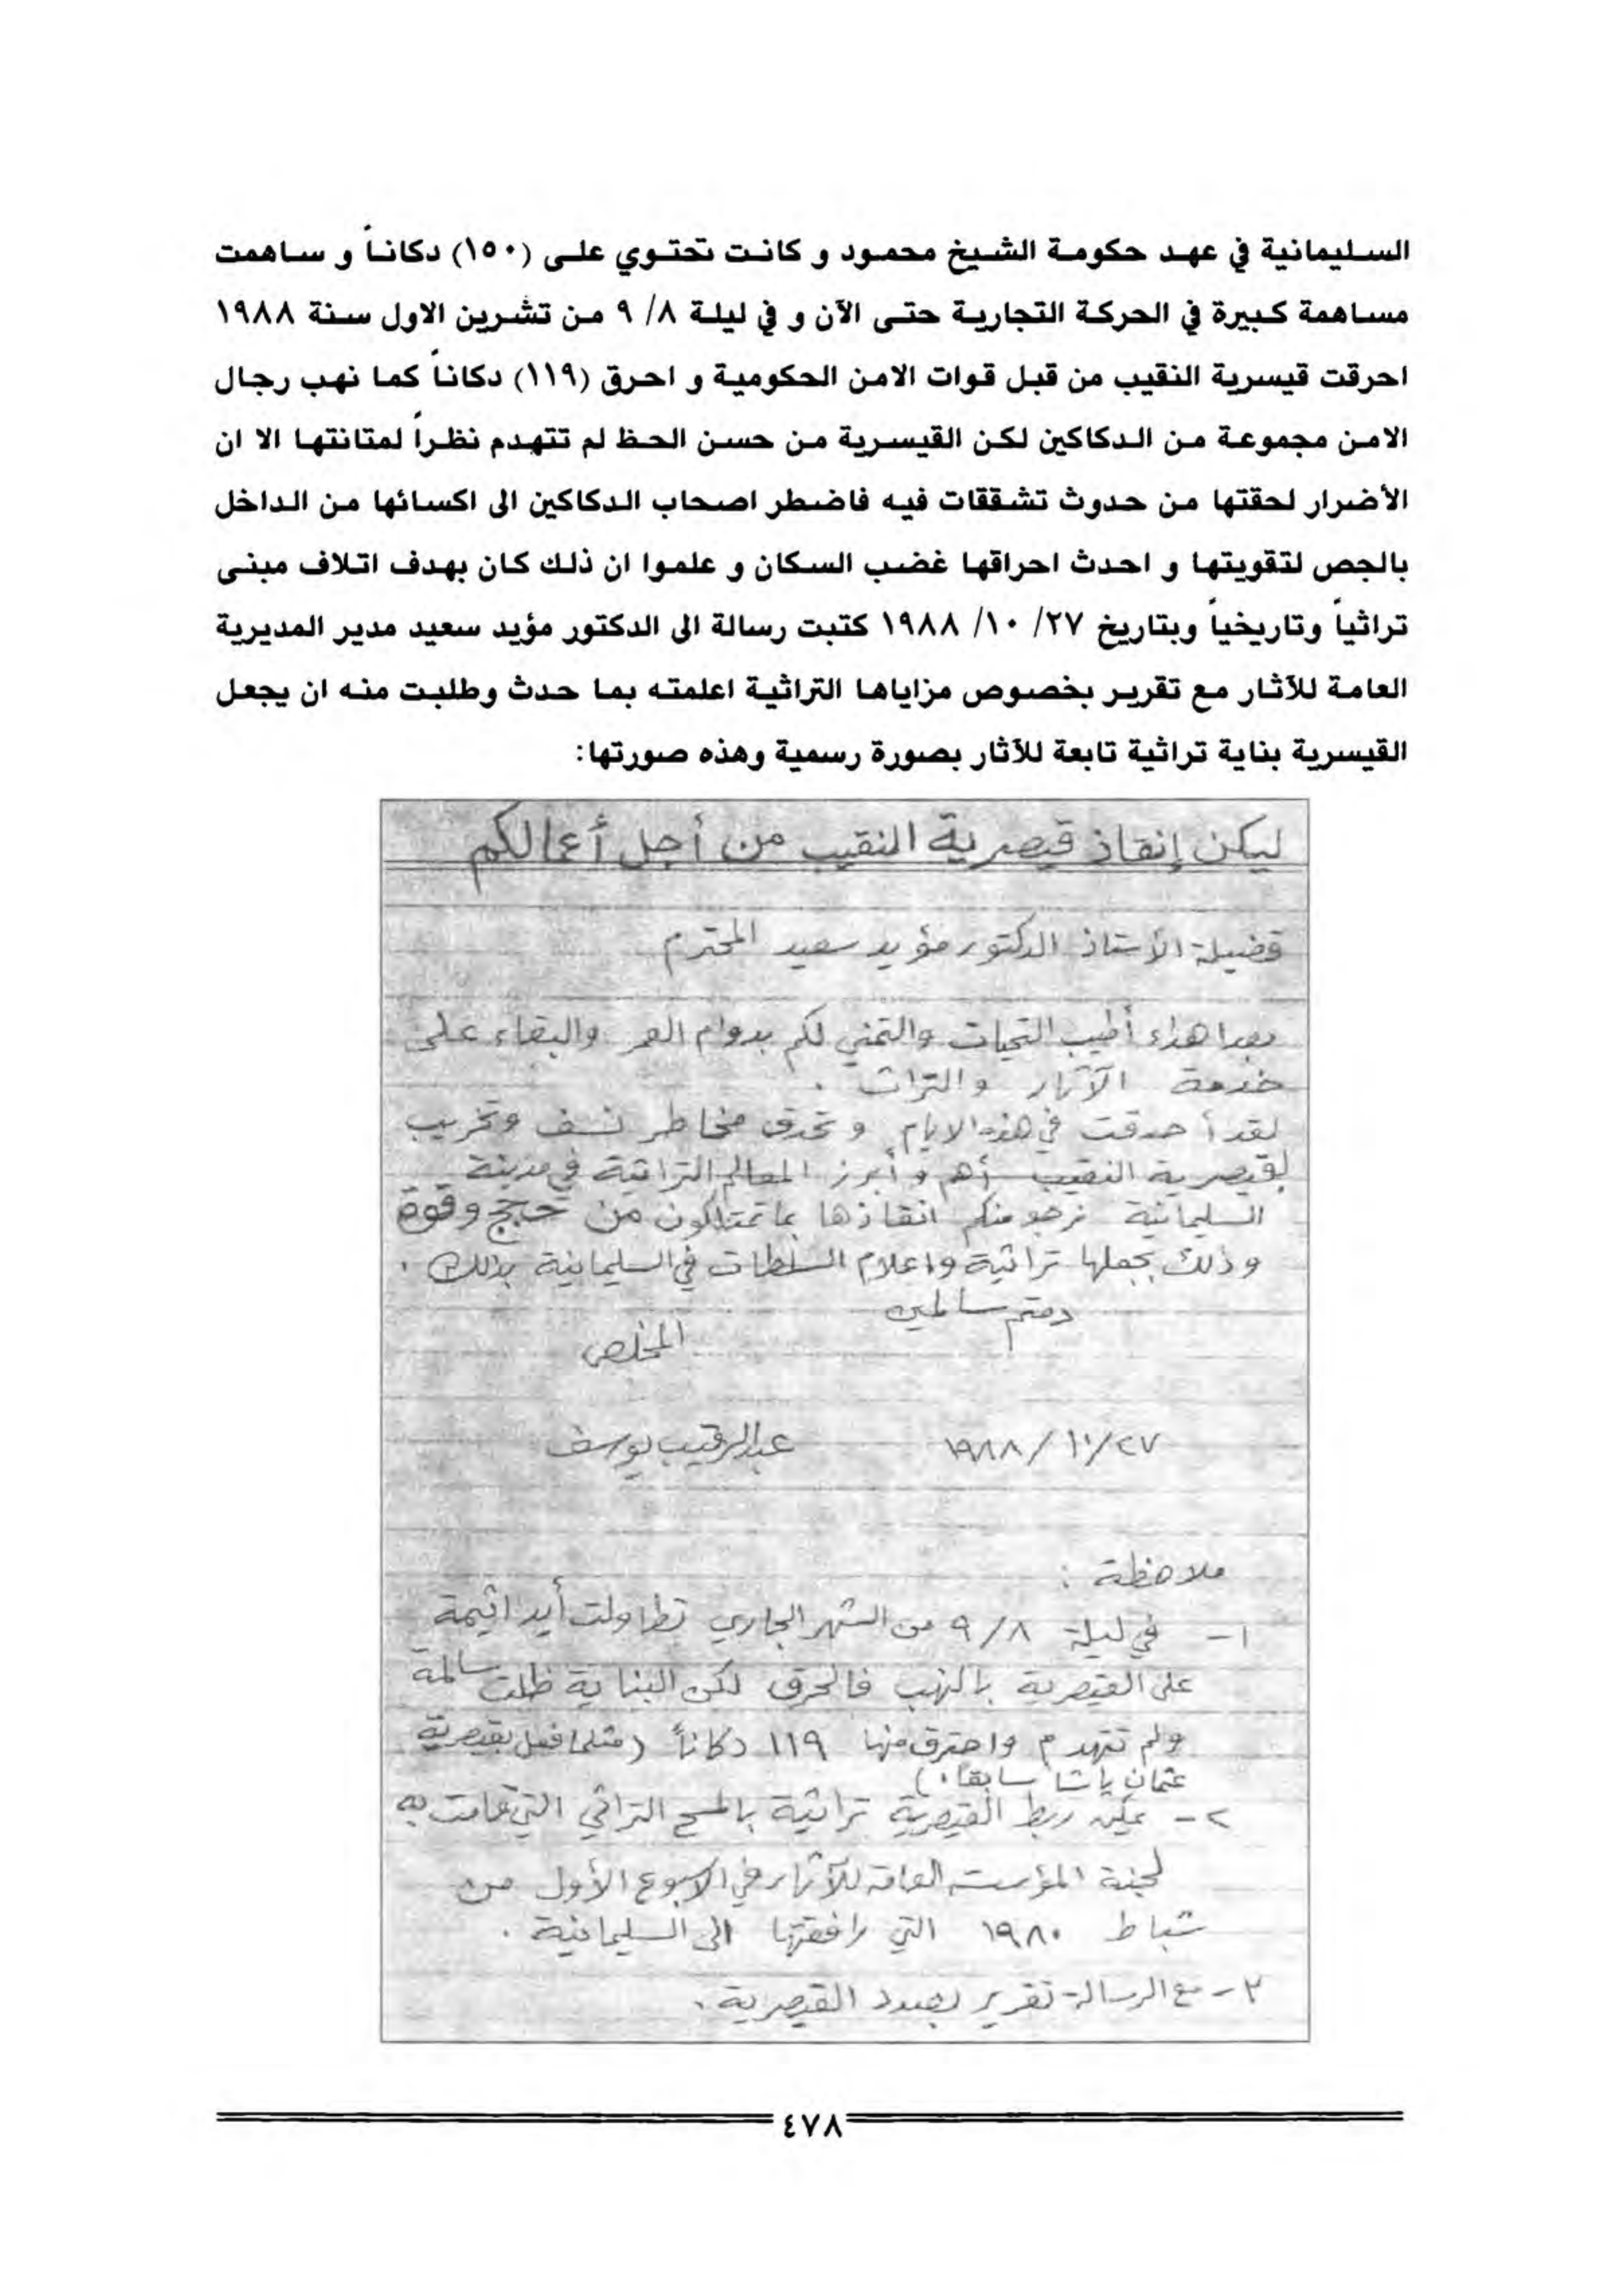 السليمانية في عهد حكومة الشيخ محمود و كانت تحتوي على (١٥٠) دكاناً و ساهمت
مساهمة كبيرة في الحركة التجارية حتى الآن و في ليلة ٨/ ٩ من تشرين الاول سنة ١٩٨٨
احرقت قيسرية النقيب من قبل قوات الامن الحكومية و احرق (١١٩) دكاناً كما نهب رجال
الامن مجموعة من الدكاكين لكن القيسرية من حسن الحظ لم تتهدم نظراً لمتانتها الا ان
الأضرار لحقتها من حدوث تشققات فيه فاضطر اصحاب الدكاكين الى اكسائها من الداخل
بالجص لتقويتها و احدث احراقها غضب السكان و علموا ان ذلك كان بهدف اتلاف مبنى
تراثياً وتاريخياً وبتاريخ ٢٧/ ١٠/ ١٩٨٨ كتبت رسالة الى الدكتور مؤيد سعيد مدير المديرية
العامة للآثار مع تقرير بخصوص مزاياها التراثية اعلمته بما حدث وطلبت منه ان يجعل
القيسرية بناية تراثية تابعة للآثار بصورة رسمية وهذه صورتها:
ليكن إنقاذ قيصرية النقيب من أجل أعمالكم
فضيلة الأستاذ الدكتور مؤيد سعيد المحترم
بعد اهداء أطيب التحيات والتمني لكم بدوام العمر والبقاء على
خدمة الآثار والتراث .
لقد أحدقت في هذه الايام وتحدق مخاطر نسف وتخريب
لقيصرية النقيب أهم وأبرز المعالم التراثية في مدينة
السليمانية نرجو منكم انقاذها بما تمتلكون من حجج وقوة
وذلك بجعلها تراثية واعلام السلطات في السليمانية بذلك .
دمتم سالمين
المخلص
٢٧/١٠/١٩٨٨ عبدالرقيب يوسف
ملاحظة :
١- في ليلة ٩/٨ من الشهر الجاري تطاولت أيد اثيمة
على القيصرية بالنهب فالحرق لكن البناية ظلت سالمة
ولم تتهدم واحترق منها ١١٩ دكاناً (مثلما فعل بقيصرية
عثمان پاشا سابقاً.)
٢- يمكن ربط القيصرية تراثية بالمسح التراثي التي قامت به
لجنة المؤسسة العامة للآثار في الاسبوع الأول من
شباط ١٩٨٠ التي رافقتها الى السليمانية .
٣- مع الرسالة تقرير بصدد القيصرية .
٤٧٨